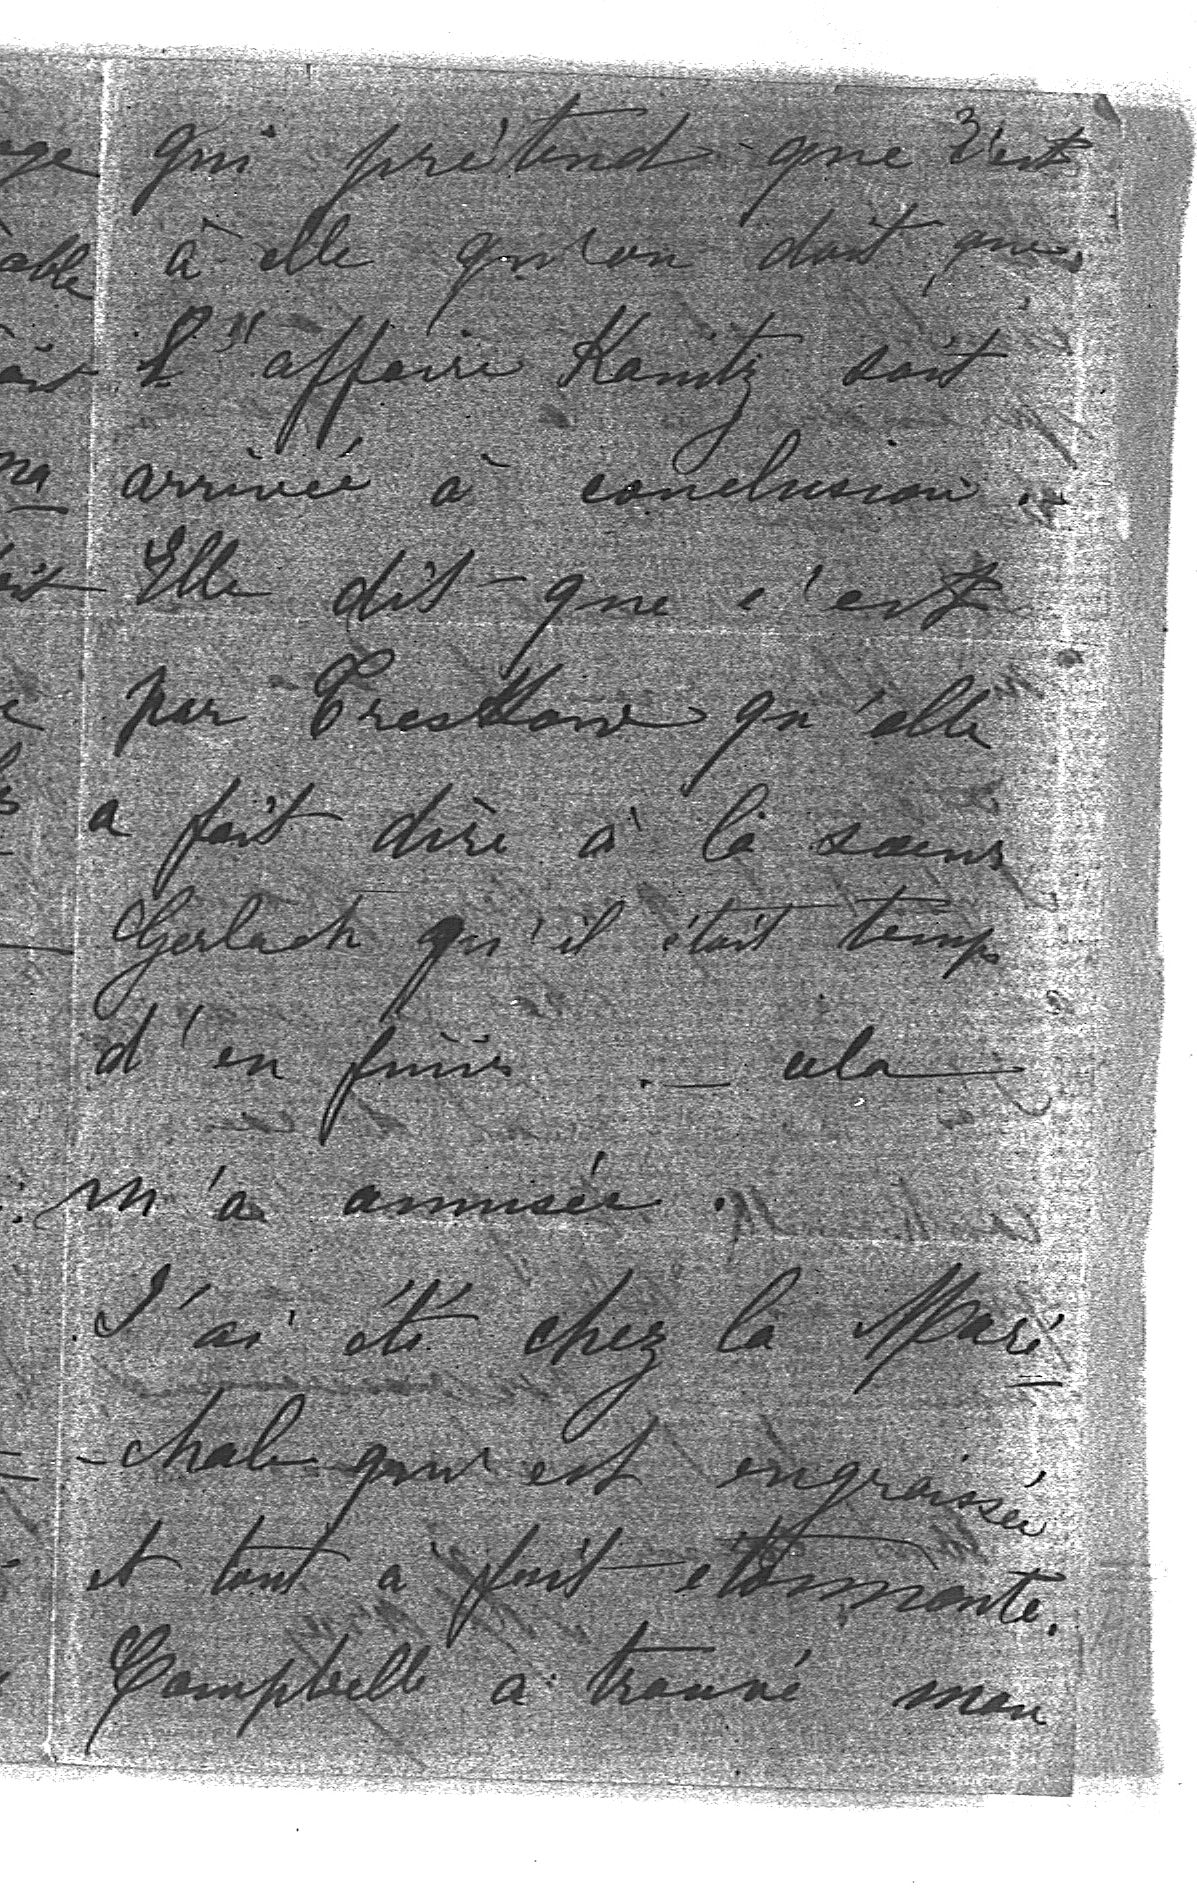 qui prétend que c'est
à elle qu'on doit que
l'"affaire Kanitz soit
arrivée à conclusion.
Elle dit que c'est
par Treskow qu'elle
a fait dire à la soeur
Gerlach qu'il était temps
d'en finir. — cela
m'a amusée.
J'ai été chez la Maré
-chale qui est engraissée
et tout à fait étonnante.
Campbelle a trouvé mon